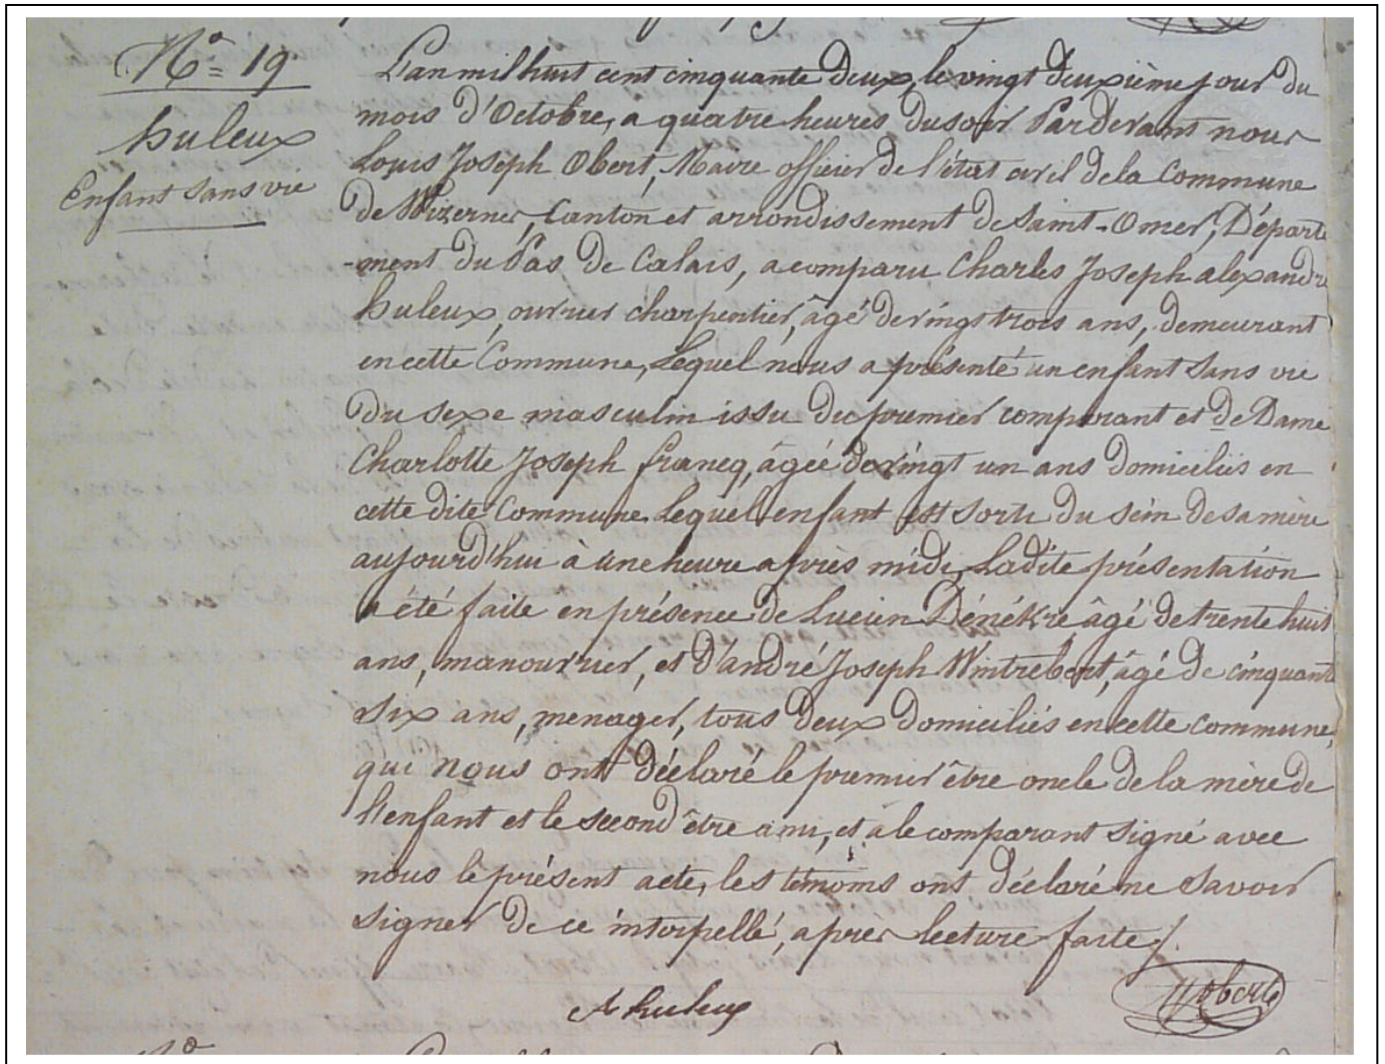 N° = 19.
huleux
Enfant sans vie
L'an mil huit cent cinquante deux, le vingt deuxième jour du
mois d'Octobre, a quatre heures du soir Pardevant nous
Louis Joseph Obert, Maire officier de l'état civil de la Commune
de Wizernes, Canton et arrondissement de Saint-Omer, Départe
-ment du Pas de Calais, a comparu Charles Joseph alexandre
huleux, ouvrier charpentier, âgé de vingt trois ans, demeurant
en cette Commune, Lequel nous a présenté un enfant sans vie
du sexe masculin issu du premier comparant et de Dame
Charlotte Joseph francq, âgée de vingt un ans domiciliés en
cette dite Commune Lequel enfant est sorti du sein de sa mère
aujourd'hui à une heure après midi, Ladite présentation
a été faite en présence de Lucien Dénékre âgé de trente huit
ans, manouvrier, et d'andré Joseph Wintrebert, âgé de cinquante
six ans, menager, tous deux domiciliés en cette commune,
qui nous ont déclaré le premier être oncle de la mère de
l'enfant et le second être ami, et a le comparant signé avec
nous le présent acte, les témoins ont déclaré ne savoir
signer de ce interpellé, après lecture faite /.
A huleux
Obert